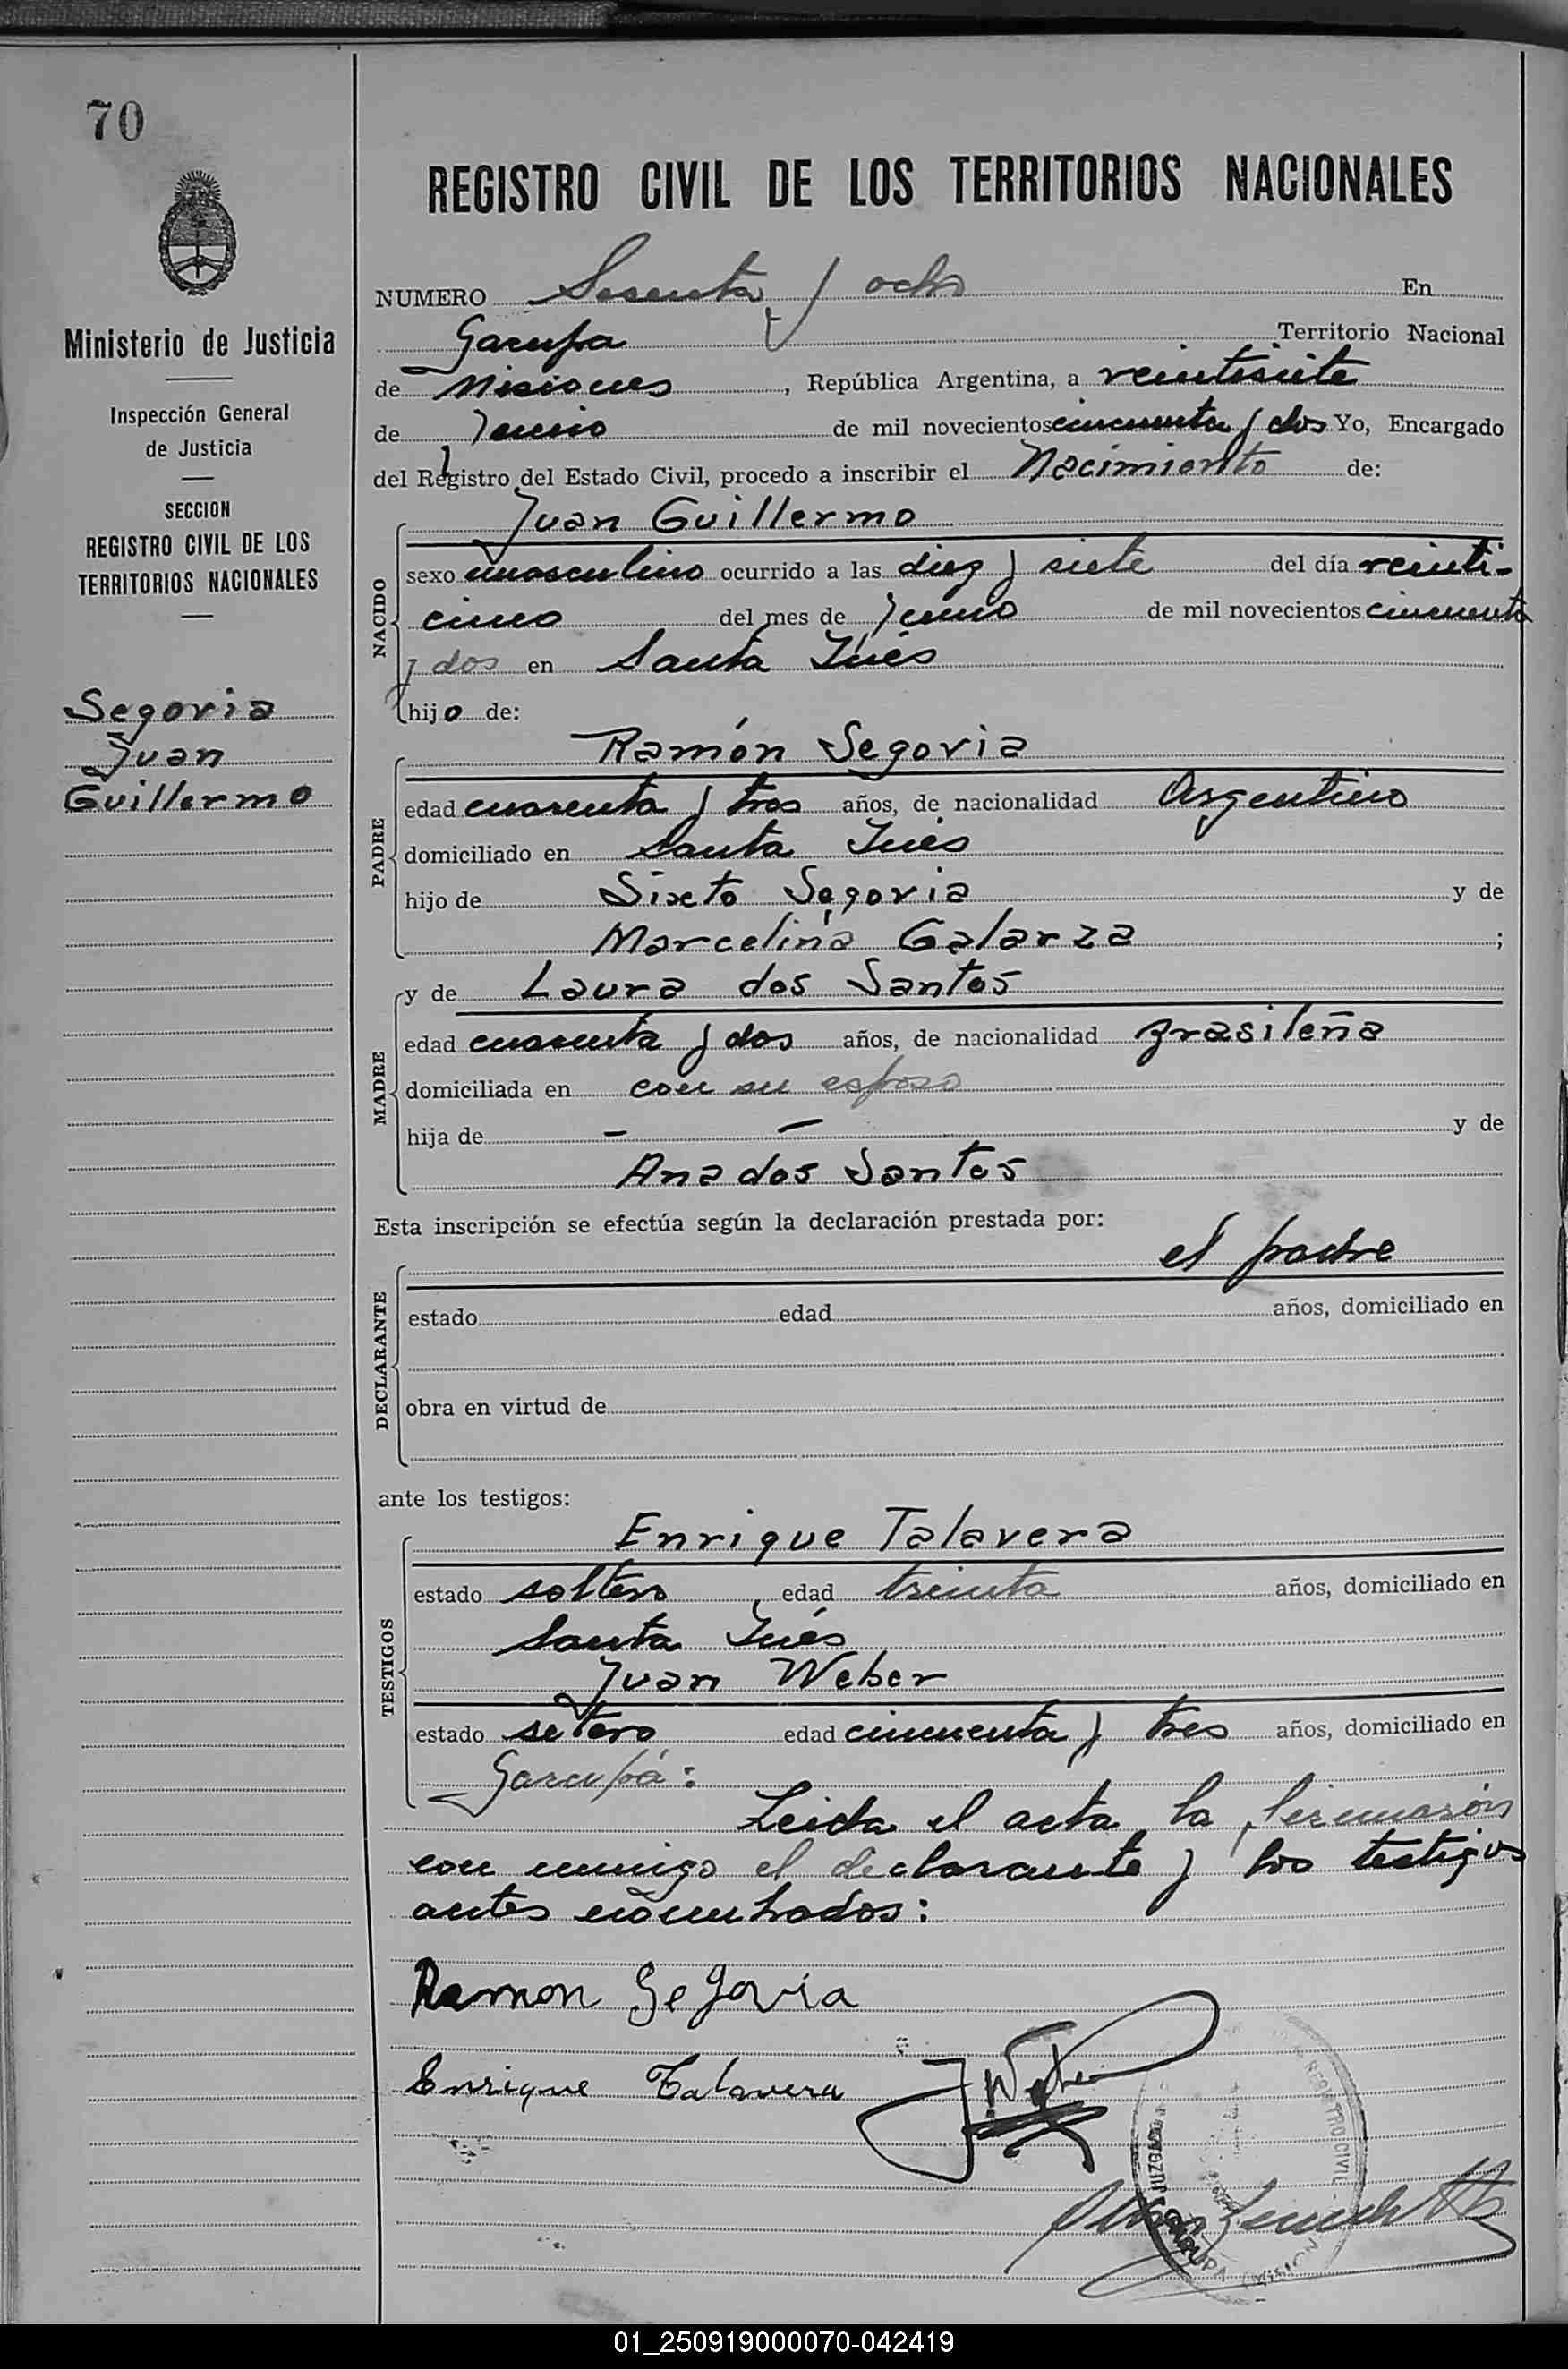 70
REGISTRO CIVIL DE LOS TERRITORIOS NACIONALES
NUMERO Sesenta y ocho En
Garupa Territorio Nacional
de Misiones, República Argentina, a veintisiete
de Junio de mil novecientos cincuenta y dos Yo, Encargado
del Registro del Estado Civil, procedo a inscribir el Nacimiento de:
Ministerio de Justicia
Inspección General
de Justicia
SECCION
REGISTRO CIVIL DE LOS
TERRITORIOS NACIONALES
Segovia
Juan
Guillermo
NACIDO
Juan Guillermo
sexo masculino ocurrido a las diez y siete del día veinti-
cinco del mes de Junio de mil novecientos cincuenta
y dos en Santa Inés
hijo de:
PADRE
Ramón Segovia
edad cuarenta y tres años, de nacionalidad Argentino
domiciliado en Santa Inés
hijo de Sixto Segovia y de
Marcelina Galarza ;
MADRE
y de Laura dos Santos
edad cuarenta y dos años, de nacionalidad Brasileña
domiciliada en con su esposo
hija de — — y de
Ana dos Santos
Esta inscripción se efectúa según la declaración prestada por:
DECLARANTE
el padre
estado edad años, domiciliado en
obra en virtud de
ante los testigos:
TESTIGOS
Enrique Talavera
estado soltero edad treinta años, domiciliado en
Santa Inés
Juan Weber
estado soltero edad cincuenta y tres años, domiciliado en
Garupá:
Leida el acta, la firmarón
con migo el declarante y los testigos
antes nombrados:
Ramon Segovia
Enrique Talavera JWeber
JUZGADO REGISTRO CIVIL
GARUPA (MISIONES)
01_250919000070-042419